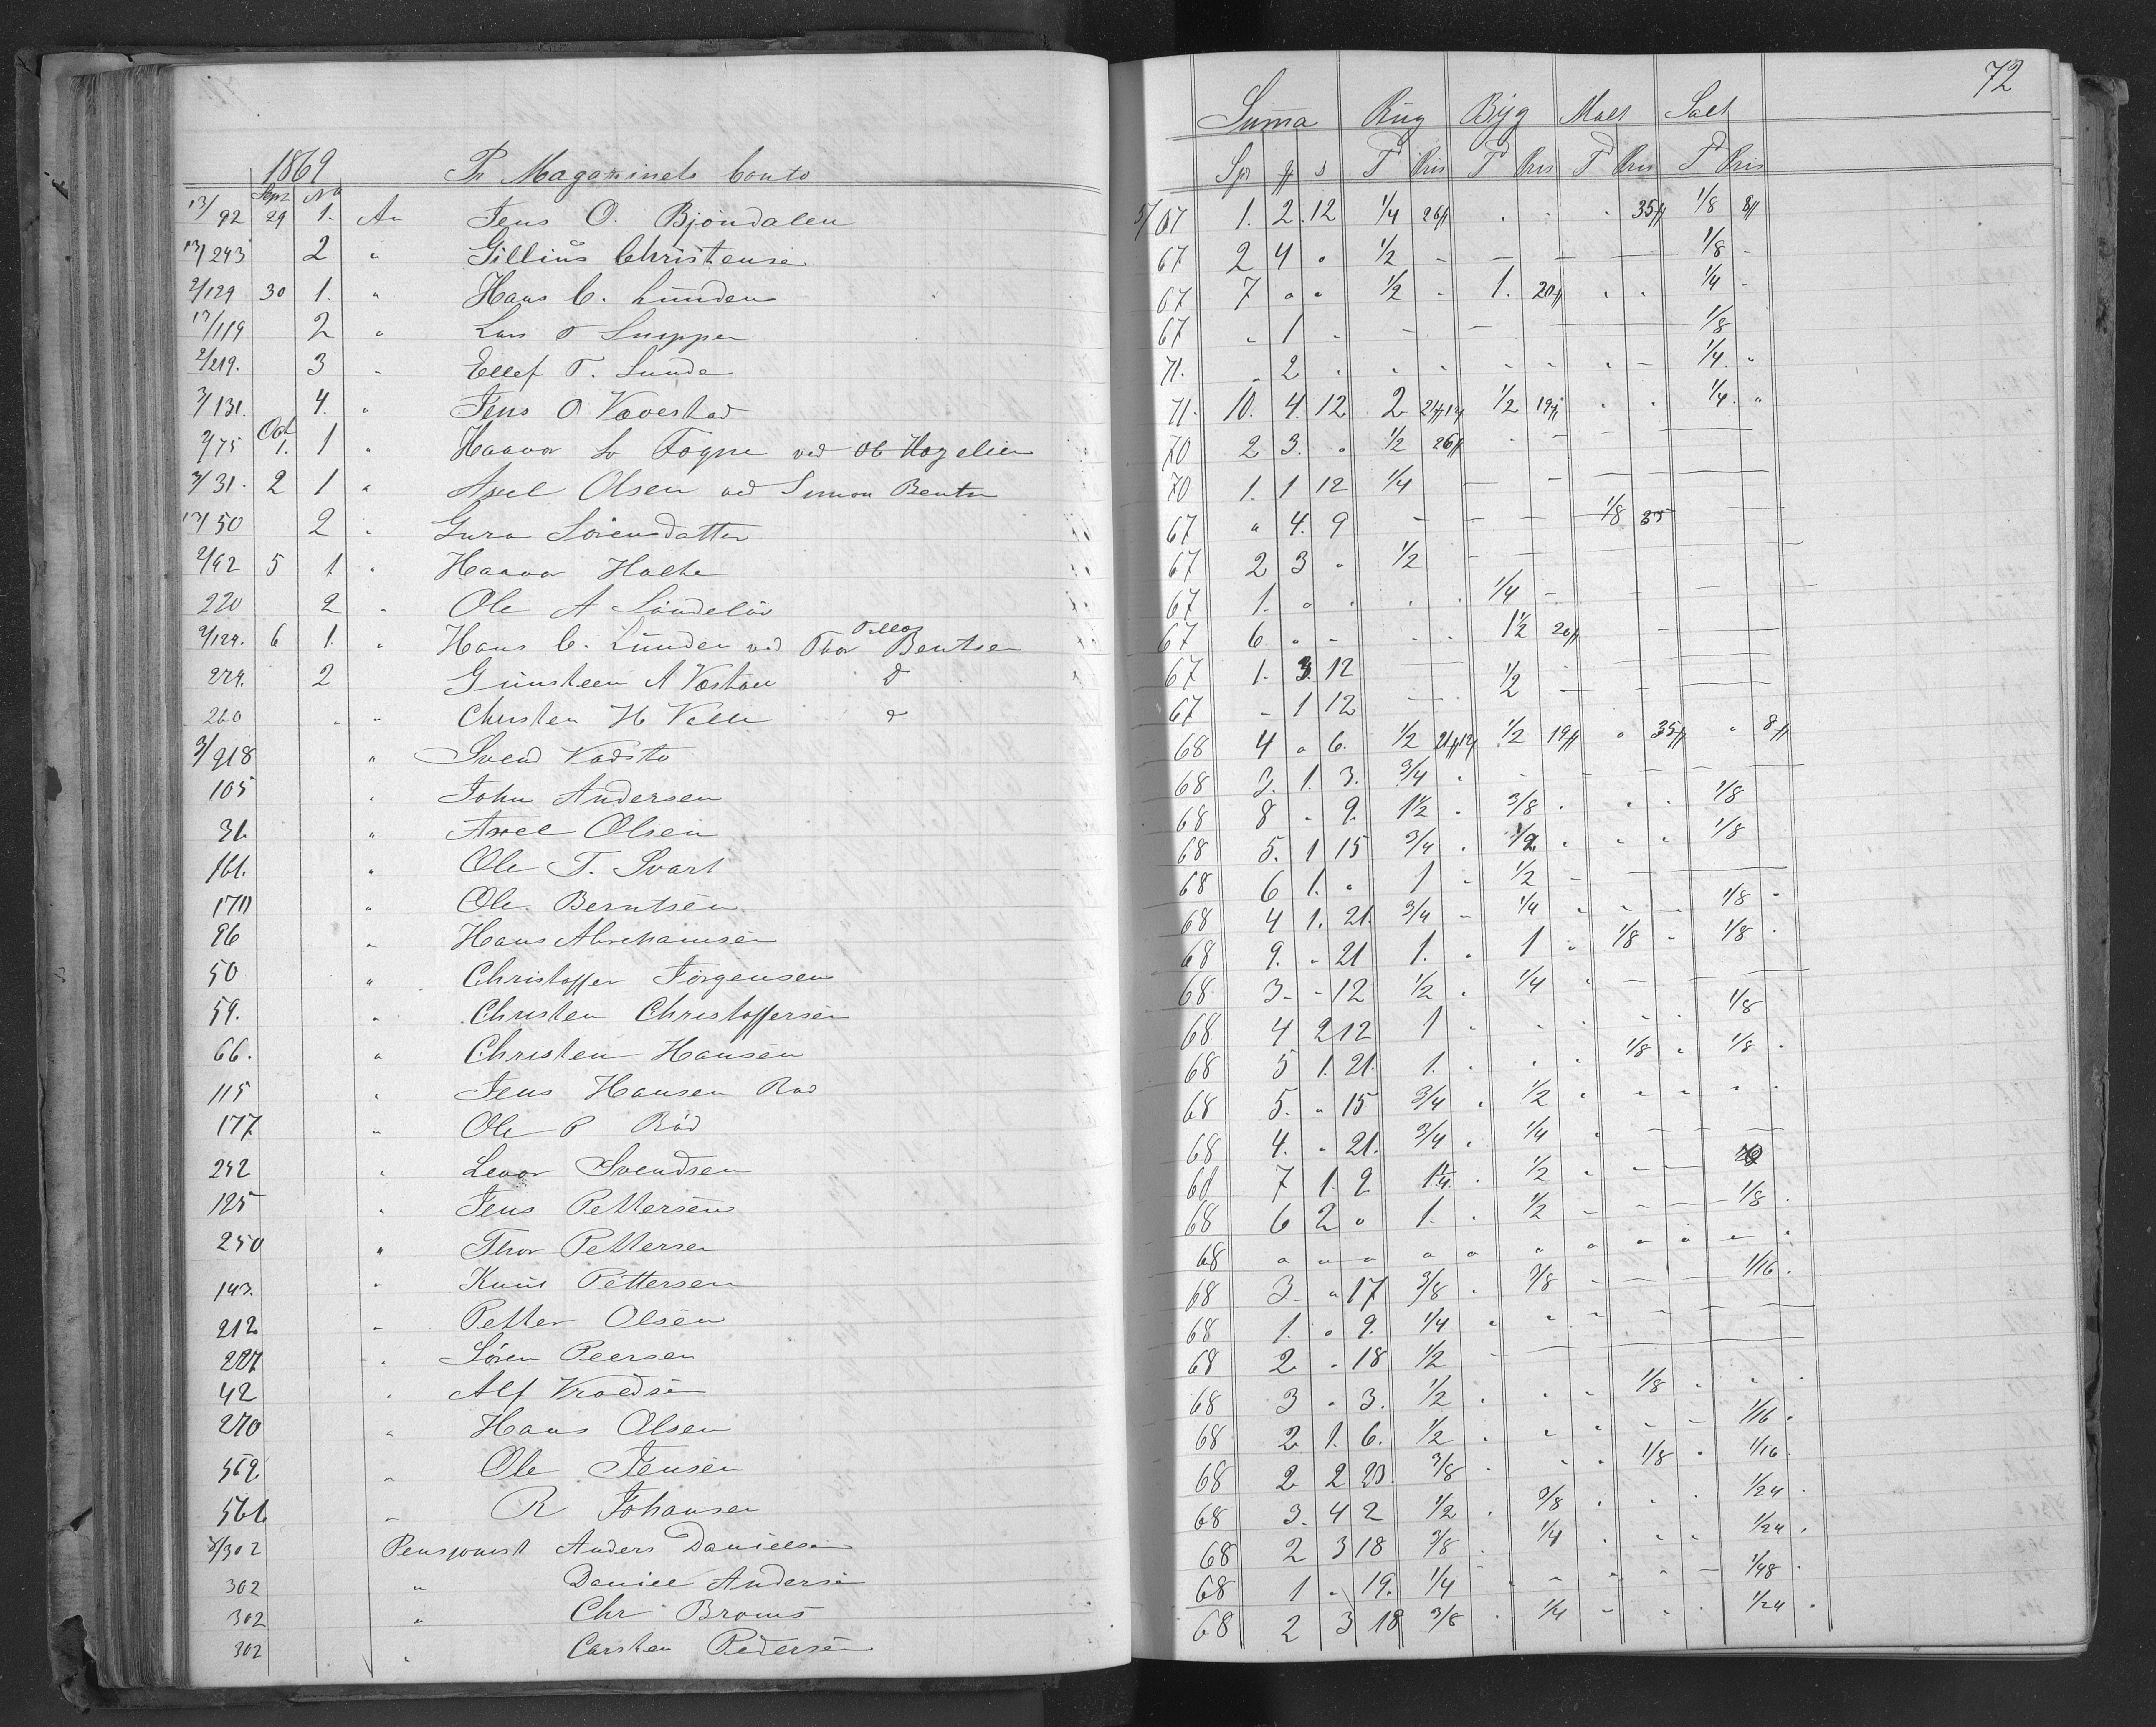 72
Summa Rug Byg Malt Salt
1869 Pr Magazinets Conto Spr ß T Pris T Pris T Pris T Pris
13/92 Sept 29 No 1. An Jens O. Bjöndalen 5/67 1. 2. 12 1/4 26 35 1/8 8
13/243 2 " Gillius Christensen 67 2 4 " 1/2 - - - - 1/8 -
2/129 30 1. " Hans C. Lunden 67 7 " " 1/2 " 1. 20 " " 1/4 "
13/119 2 " Lars 67 " 1 " - - - 1/8
2/219. 3 " Ellef T. Lunde 71. " 2 " " " " 1/4 "
3/131. 4. " Jens O Vævestad 71. 10. 4. 12 2 21 1/2 19 " " 1/4. "
2/75 Oct 1. 1 " Haavor Fogne ved 70 2 3. " 1/2 26 " - -
3/31. 2 1 " Axel Olsen ved Simon Bentsen 70 1. 1 12 1/4 - - - -
13/50 2 " Guro Sörensdatter 67 " 4. 9 - - - 1/8 35
2/62 5 1. " Haavor Holte 67 2 3 " 1/2 - - - -
220 2 " Ole A Söndeløv 67 1. " " " 1/4 - - - -
2/129. 6 1. " Hans C. Lunden ved Thor Bentsen 67 6 " - " " 1 1/2 20 - -
224. 2 Gunsteen A d 67 1. 3. 12 - 1/2 - - -
260 " " Christen H Valle d 67 " 1 12 -
3/218 " Svend Vadsto 68 4 " 6. 1/2 21 1/2 19 " 35 " 8
105 " John Andersen 68 3. 1. 3. 3/4 " - - - -
31. " Axel Olsen 68 8 " 9. 1 1/2 " 3/8 " " " 1/8
161. " Ole T. Svart 68 5. 1 15 3/4 " 1/2 " " " 1/8
170 " Ole Berntsen 68 6 1. " 1 " 1/2 - - -
96 " Hans Abrehamsen 68 4 1. 21. 3/4 " 1/4 " " " 1/8 "
50 " Christoffer Jörgensen 68 9. " 21 1. " 1 " 1/8 " 1/8 "
59. " Christen Christoffersen 68 3 - 12 1/2 " 1/4 " - - -
66. " Christen Hansen 68 4 2 12 1 " " " " " 1/8
115 " Jens Hansen Rød 68 5 1. 21. 1. " " " 1/8 " 1/8 "
177 " Ole P Röd 68 5. " 15 3/4 " 1/2 " " " " "
242 " Levor Svendsen 68 4. " 21. 3/4 " 1/4 " - - -
125 " Jens Pettersen 68 7 1. 2 1 1/4 " 1/2 " - -
250 " Thor Pettersen 68 6 2 " 1. " 1/2 " - - 1/8 "
143. " Knut Pettersen 68 " " " " " " " " " " "
212 " Petter Olsen 68 3. " 17 3/8 " 3/8 - - - 1/16 "
227 " Sören Peersen 68 1. " 9. 1/4 " " - - - -
42 " Alf 68 2 " 18 1/2 - - - -
270 " Hans Olsen 68 3 " 3. 1/2 " " " 1/8 " " "
562 " Ole Jensen 68 2 1. 6. 1/2 " " " - - 1/16 "
561. " R Johansen 68 2. 2 23. 3/8 " " " 1/8 " 1/16 "
3/302 Pensjonist Anders Danielsen 68 3. 4 2 1/2 " 3/8 " " " 1/24 "
302 " Daniel Andersen 68 2 3 18 3/8 " 1/4 " " " 1/24 "
302 " Chr Broms 68 1 " 19. 1/4 " " " " - 1/48 "
302 " Carsten Pedersen 68 2 3 18 3/8 " 1/4 " " " 1/24 "